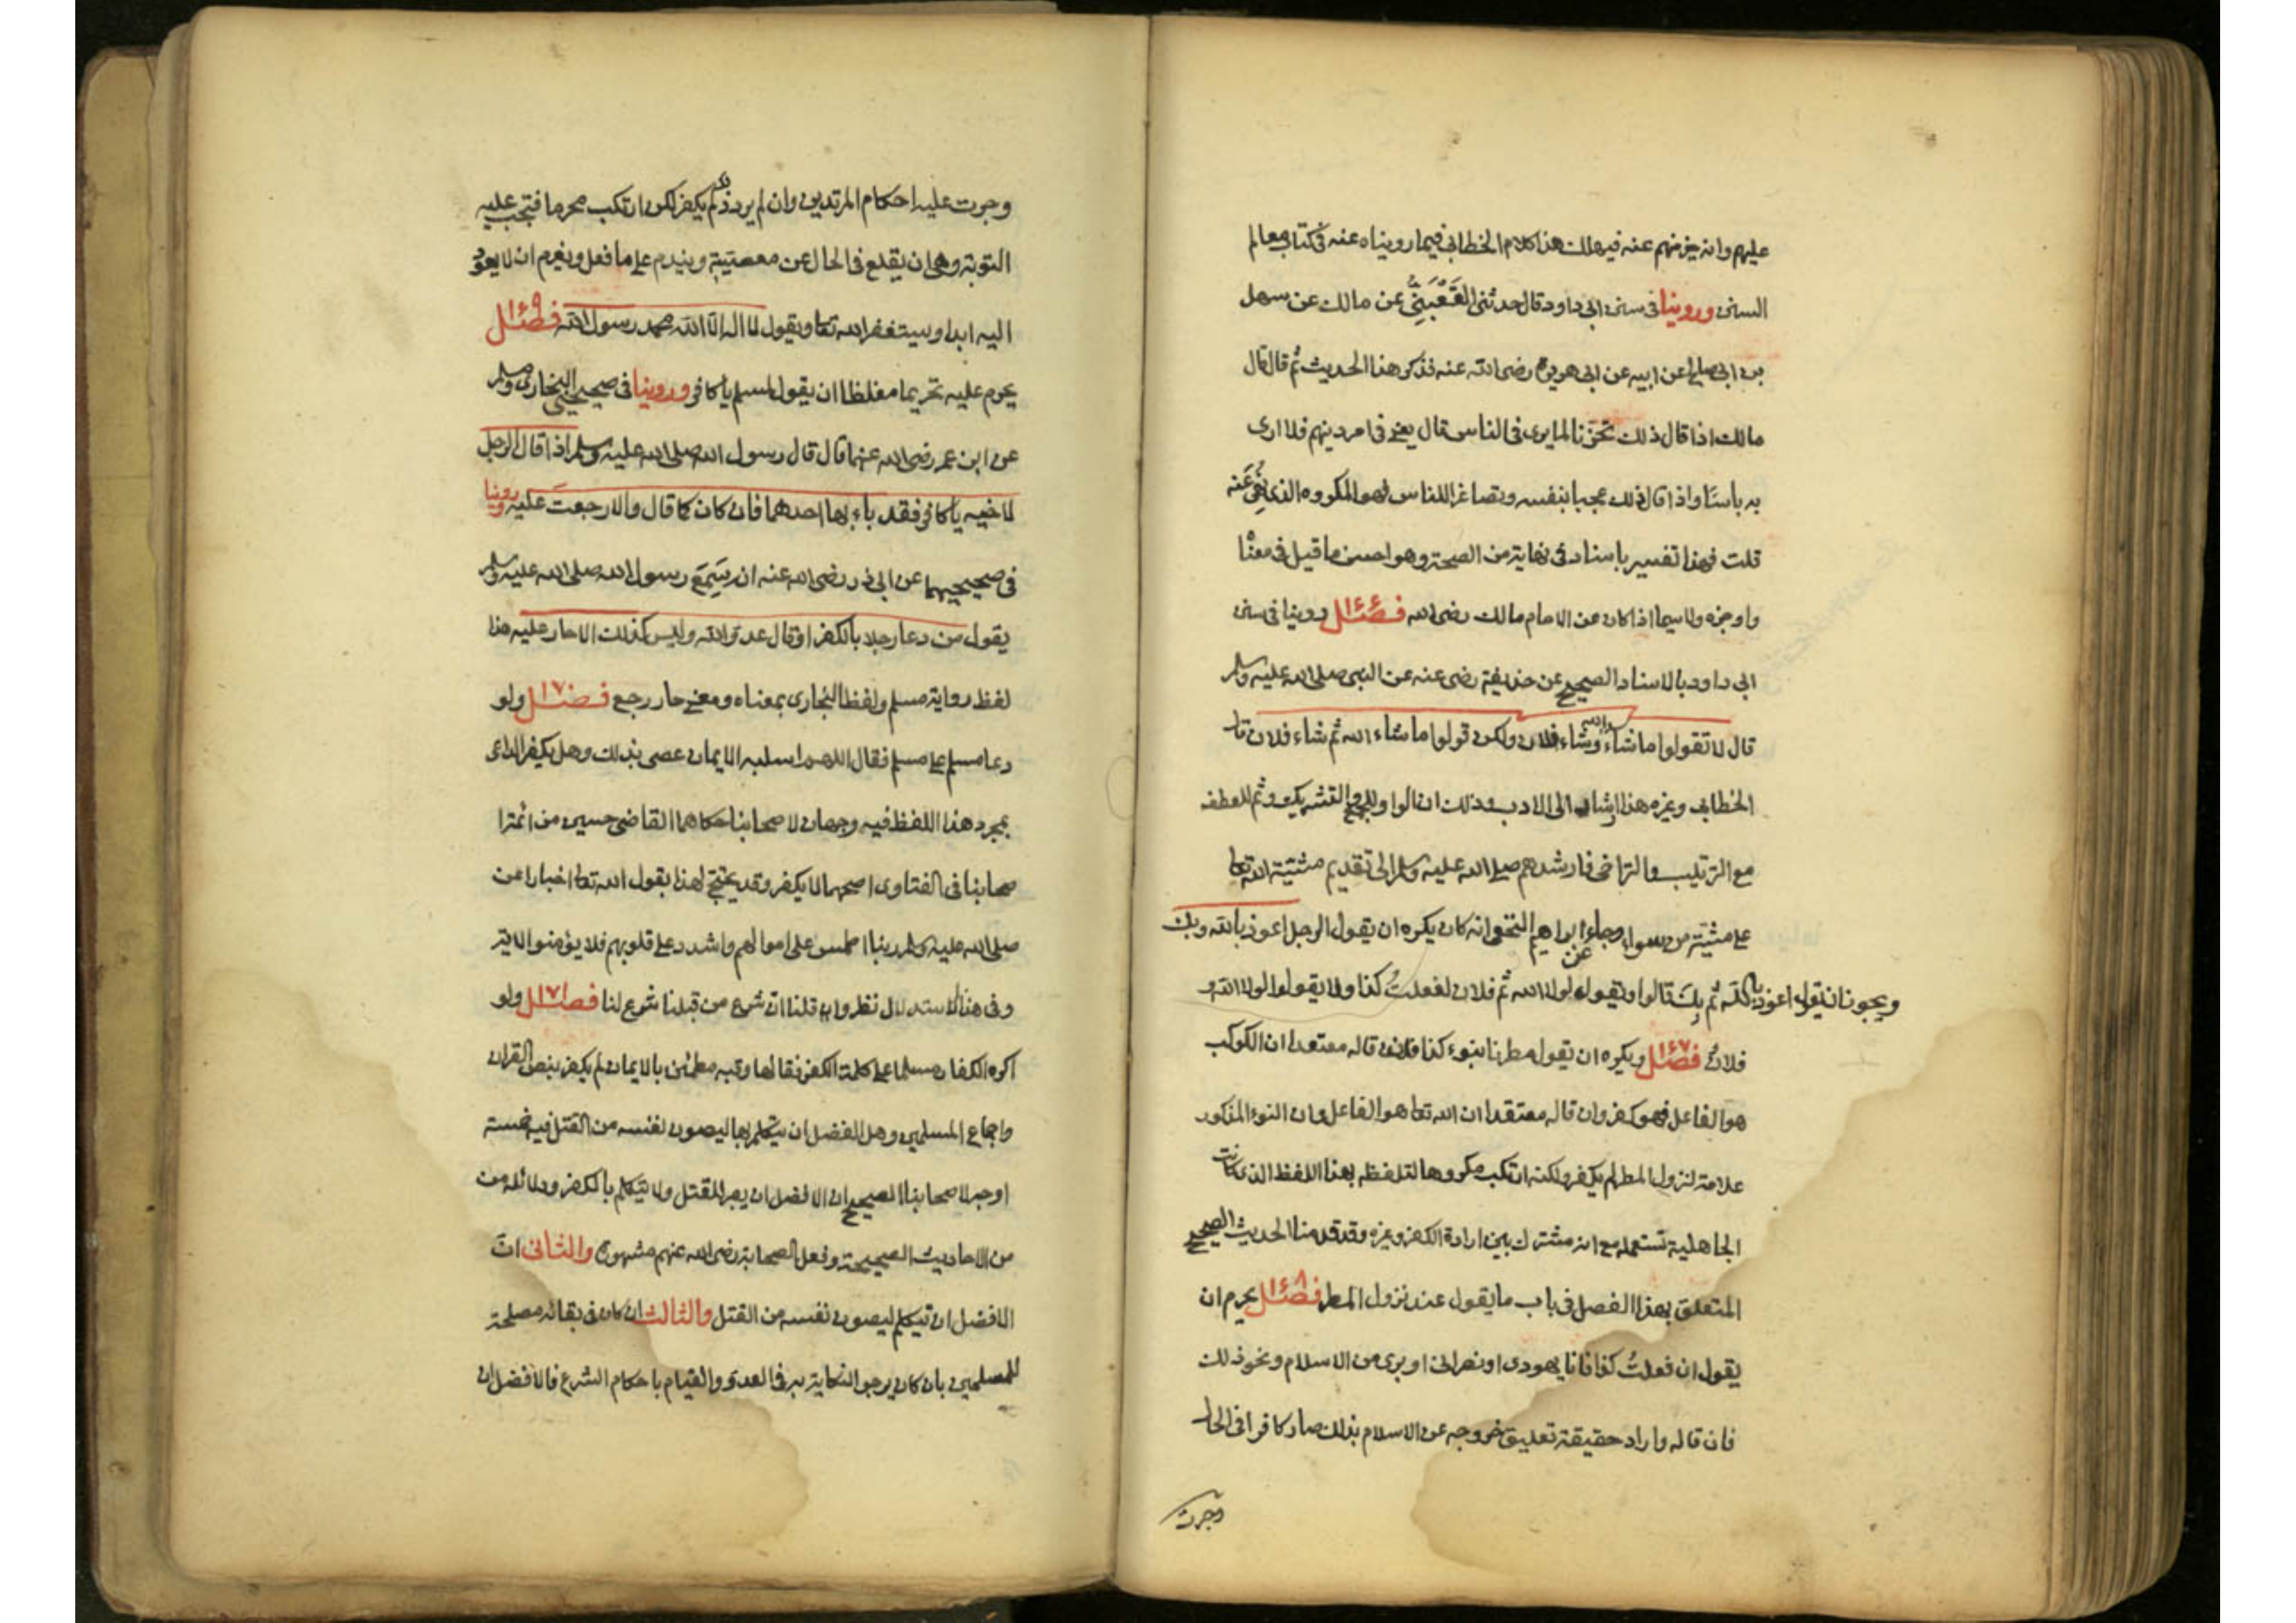 عليهم وانه خير منهم عنه فيهلك هذا كلام الخطابي فيما رويناه عنه في كتاب معالم
السنن وروينا في سنن ابي داود قال حدثنا القَعْبَنِيُّ عن مالك عن سهل
بن ابي صالح عن ابيه عن ابي هريرة رضى الله عنه فذكر هذا الحديث ثم قال قال
مالك اذا قال ذلك تحزنا لما يرى في الناس قال يعني في امر دينهم فلا ارى
به باسًا واذا قال ذلك عجبا بنفسه وتصاغرا للناس فهو المكروه الذى نُهِيَ عَنه
قلت فهذا تفسير باسناد في نهاية من الصحة وهو احسن ما قيل في معنا
واوجزه ولا سيما اذا كان عن الامام مالك رضى الله فصل ١٤٦ روينا في سنن
ابي داود بالاسناد الصحيح عن حذيفة رضى عنه عن النبى صلى الله عليه وسلم
قال لا تقولوا ما شاء الله وشاء فلان ولكن قولوا ما شاء الله ثم شاء فلان قال
الخطابي وغيره هذا ارشاد الى الادب وذلك ان الواو للجمع والتشريك وثم للعطف
مع الترتيب والتراخى فارشدهم صلى الله عليه وسلم الى تقديم مشيئة الله تعا
على مشيئة من سواه وجاء عن ابراهيم النخعى انه كان يكره ان يقول الرجل اعوذ بالله وبك
ويجوز ان يقول اعوذ بالله ثم بِكَ قالوا ويقول لولا الله ثم فلان لفعلتُ كذا ولا يقولوا لولا الله و
فلانٌ فصل ١٤٧ ويكره ان يقول مطرنا بنوء كذا فان قاله معتقدا ان الكوكب
هو الفاعل فهو كفر وان قاله معتقدا ان الله تعا هو الفاعل وان النوء المذكور
علامة لنزول المطر لم يكفر ولكنه ارتكب مكروها لتلفظه بهذا اللفظ الذى كانت
الجاهلية تستعمله مع انه مشترك بين ارادة الكفر وغيره وقد قدمنا الحديث الصحيح
المتعلق بهذا الفصل في باب ما يقول عند نزول المطر فصل ١٤٨ يحرم ان
يقول ان فعلتُ كذا فانا يهودى او نصرانى او برى من الاسلام ونحو ذلك
فان قاله واراد حقيقة تعليق خروجه عن الاسلام بذلك صار كافرا فى الحال
وجرت
وجرت عليه احكام المرتدين وان لم يرد ذلك لم يكفر لكن ارتكب محرما فتجب عليه
التوبة وهى ان يقلع فى الحال عن معصيته ويندم على ما فعل ويعزم ان لا يعود
اليه ابدا ويستغفر الله تعا ويقول لا اله الا الله محمد رسول الله فصل ١٤٩
يحرم عليه تحريما مغلظا ان يقول لمسلم يا كافر وروينا في صحيحي البخارى ومسلم
عن ابن عمر رضى الله عنهما قال قال رسول الله صلى الله عليه وسلم اذا قال الرجل
لاخيه يا كافر فقد باء بها احدهما فان كان كما قال والا رجعت عليه وروينا
في صحيحيهما عن ابي ذر رضى الله عنه انه سَمِعَ رسول الله صلى الله عليه وسلم
يقول من دعا رجلا بالكفر او قال عدو الله وليس كذلك الا حار عليه هذا
لفظ رواية مسلم ولفظ البخارى بمعناه ومعنى حار رجع فصل ١٧٠ ولو
دعا مسلم على مسلم فقال اللهم اسلبه الايمان عصى بذلك وهل يكفر الداعى
بمجرد هذا اللفظ فيه وجهان لاصحابنا حكاهما القاضى حسين من ائمة ا
صحابنا فى الفتاوى اصحهما لا يكفر وقد يحتج لهذا بقول الله تعا اخبارا عن
صلى الله عليه وسلم ربنا اطمس على اموالهم واشدد على قلوبهم فلا يؤمنوا الاية
وفى هذا الاستدلال نظر وان قلنا ان شرع من قبلنا شرع لنا فصل ١٧١ ولو
اكره الكفار مسلما على كلمة الكفر فقالها وقلبه مطمئن بالايمان لم يكفر بنص القران
واجماع المسلمين وهل الافضل ان يتكلم بها ليصون نفسه من القتل فيه خمسة
اوجه لاصحابنا الصحيح ان الافضل ان يصبر للقتل ولا يتكلم بالكفر ودلائله من
من الاحاديث الصحيحة وفعل الصحابة رضى الله عنهم مشهورة والثانى انّ
الافضل ان يتكلم ليصون نفسه من القتل والثالث ان كان فى بقائه مصلحة
للمسلمين بان كان يرجو النكاية به فى العدو والقيام باحكام الشرع فالافضل ان